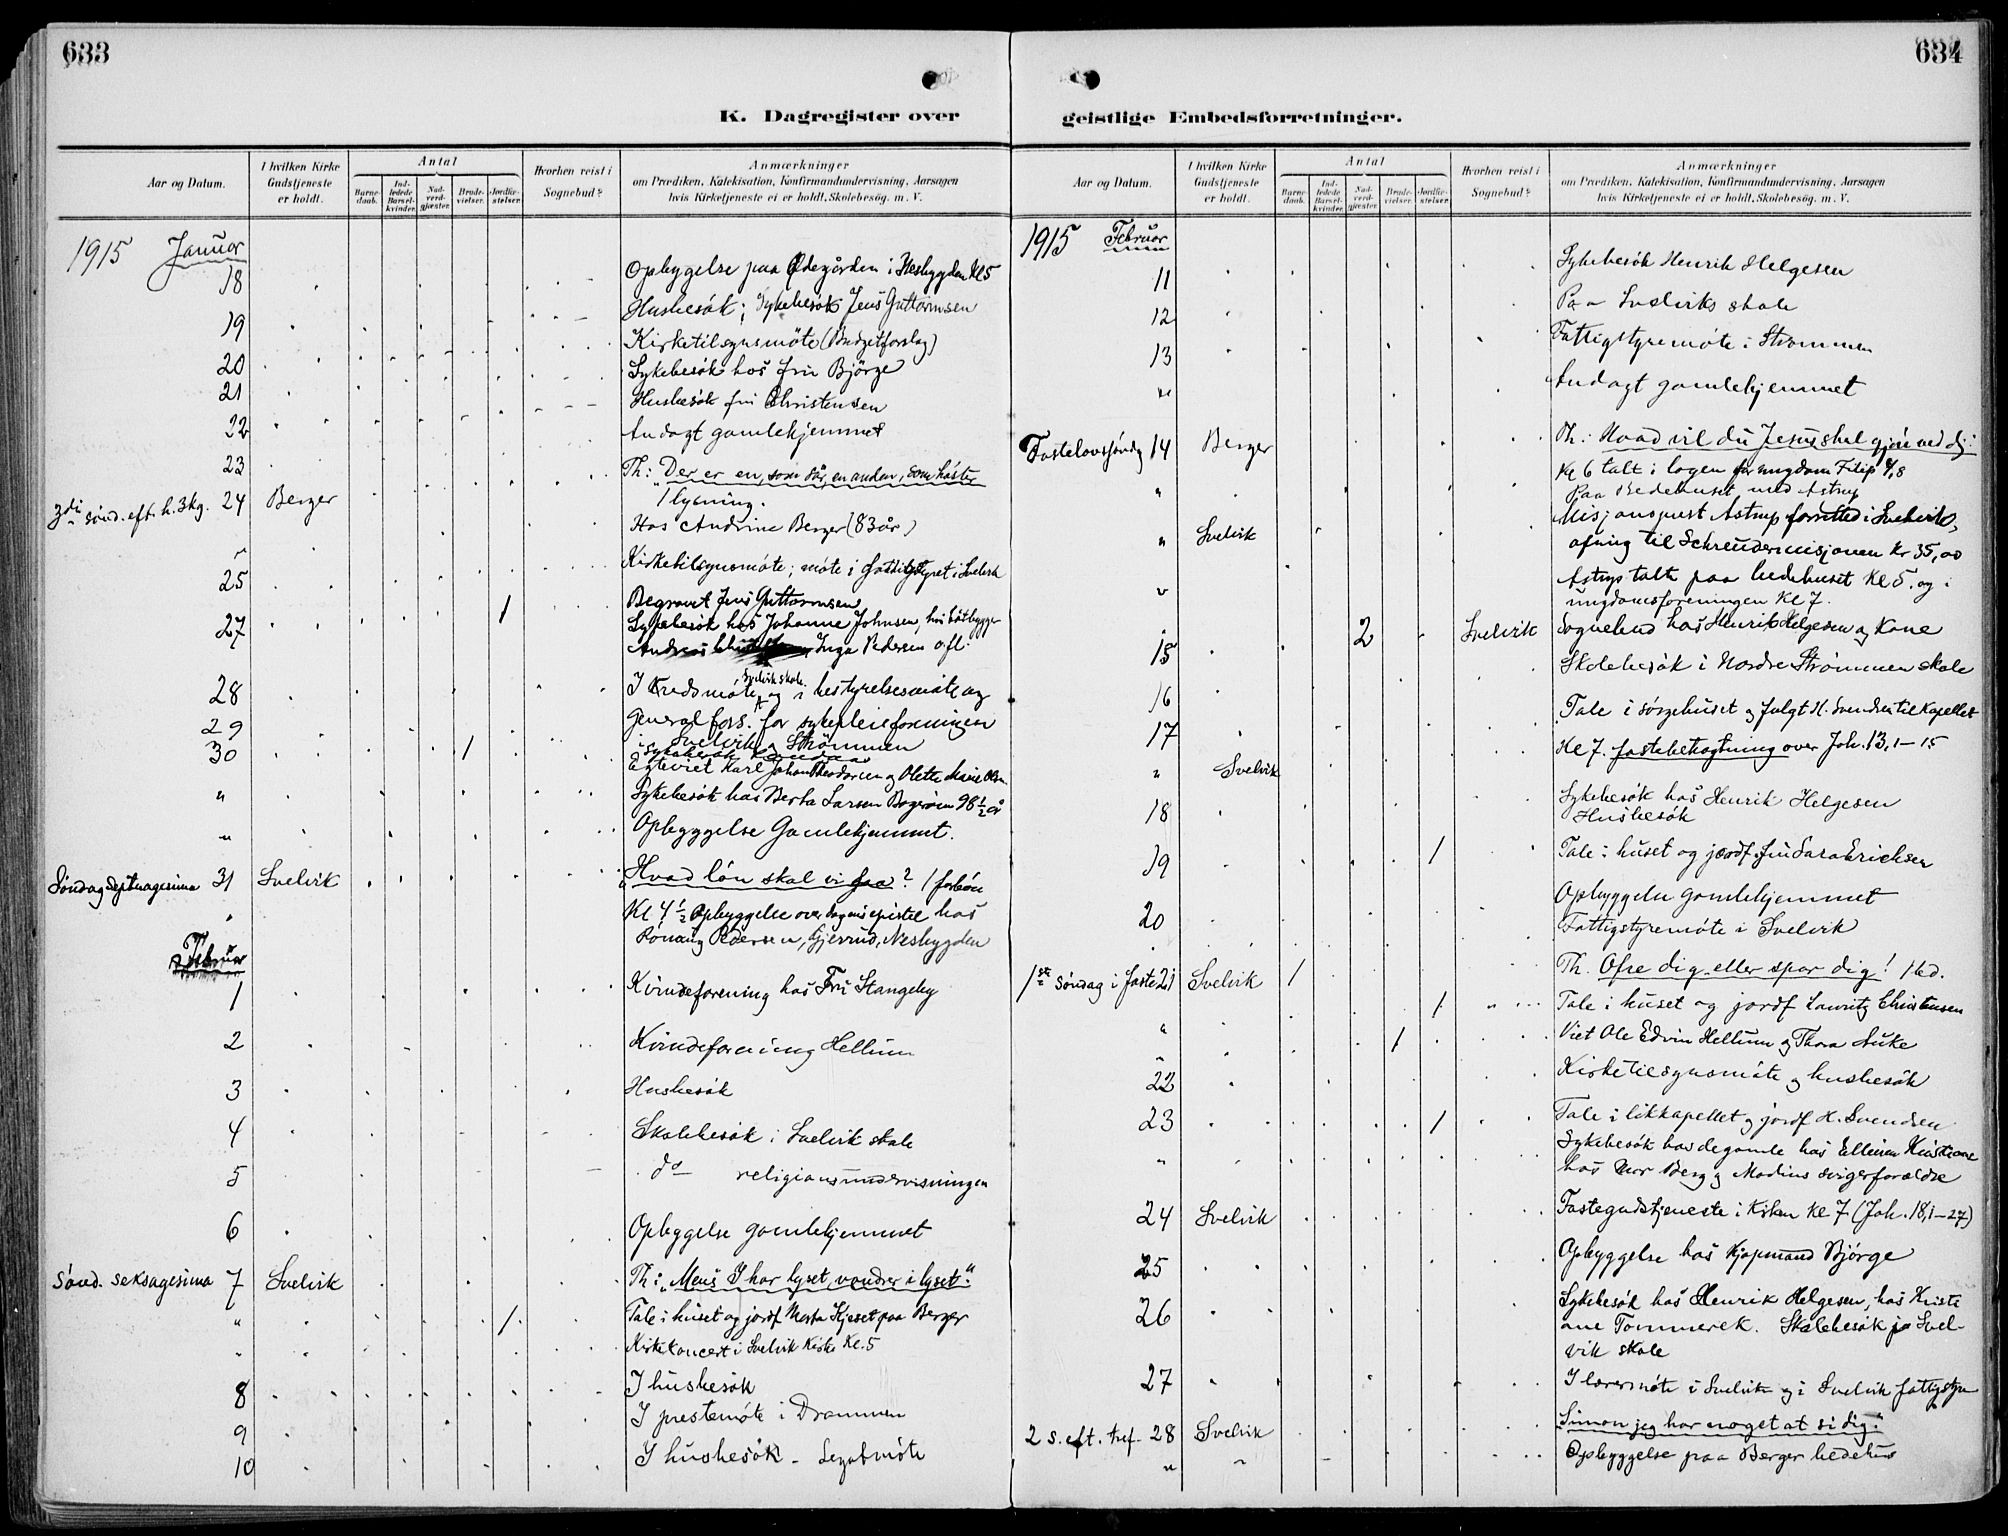 633
K. Dagregister over
Aar og Datum.
I hvilken Kirke Gudstjeneste er holdt.
Antal
Barnedaab.
Indledede Barselkvinder.
Nadverdgjæster.
Brudevielser.
Jordfæstelser.
Hvorhen reist i Sognebud?
Anmærkninger
om Prædiken, Katekisation, Konfirmandundervisning, Aarsagen
hvis Kirketjeneste ei er holdt, Skolebesøg. m. V.
1915 Januar
18 Opbygelse paa Ødegården i Nesbygden Kl 5
Husbesök; Sykebesök Jens Guttormsen
19 Kirketilsynsmöte (Budgetforslag)
20 Sykebesök hos fru Björge
21 Husbesök fru Christensen
22 Andagt gamlehjemmet
23 Th: Der er en, som sår, en anden, som höster
3die sönd. eft. h. 3 kg. 24 Berger 1 lysning.
Hos Andrine Berger (83 år)
25 Kirketilsynsmöte; möte i fattigstyret i Svelvik
27 1 Begravet Jens Guttormsen
Sykebesök hos Johanne Johnsen, hos båtbygger
Andreas Inga Pedersen ofl.
28 I Kredsmöte Svelvik skole og i bestyrelsesmöte og
29 Generalfors. for sykepleieforeningen
30 1 i Svelvik og Strömmen
Egteviet Karl Johan Theodorsen og Olette Marie Olsen
" Sykebesök hos Berta Larsen Bogeröen 98 1/2 år
" Opbyggelse Gamlehjemmet.
Söndag Septuagesima 31 Svelvik "Hvad lön skal vi faa? 1 forbön
" Kl 4 1/2 Opbyggelse over dagens epistel hos
Pedersen, Gjerrud, Nesbygden
Februar
1 Kvindeforening hos Fru Stangeby
2 Kvindeforening Hellum
3 Husbesök
4 Skolebesök i Svelvik skole
5 do religionsundervisningen
6 Opbyggelse gamlehjemmet
Sönd. seksagesima 7 Svelvik Th: "Mens I har lyset, vandrer i lyset."
" 1 Tale i huset og jordf Marta Kjeset paa Berger
" Kirkekoncert i Svelvik Kirke Kl. 5
8 I husbesök
9 I prestemöte i Drammen
10 I husbesök - Legatmöte
634
geistlige Embedsforretninger.
Aar og Datum.
I hvilken Kirke Gudstjeneste er holdt.
Antal
Barnedaab.
Indledede Barselkvinder.
Nadverdgjæster.
Brudevielser.
Jordfæstelser.
Hvorhen reist i Sognebud?
Anmærkninger
om Prædiken, Katekisation, Konfirmandundervisning, Aarsagen
hvis Kirketjeneste ei er holdt, Skolebesøg. m. V.
1915 Februar
11 Sykebesök Henrik Helgesen
12 Paa Svelviks skole
13 Fattigstyremöte i Strömmen
" Andagt gamlehjemmet
Fastelavssöndag 14 Berger Th: Hvad vil du Jesus skal gjöre ved dig?
Kl 6 talt i logen for ungdom Filip 4,8
" Paa Bedehuset med Astrup
" Svelvik Misjonsprest Astrup forretted i Svelvik,
ofring til Schreudermisjonen Kr 35,00
" Astrup talte paa bedehuset Kl 5. og i
ungdomsforeningen Kl 7.
15 2 Svelvik Sognebud hos Henrik Helgesen og Kone
Skolebesök i Nordre Strömmen skole
16 Tale i sörgehuset og fulgt H. Svendsen til Kapellet
17 Kl 7. fastebetragtning over Joh. 13,1-15
" Svelvik
18 Sykebesök hos Henrik Helgesen
Husbesök
19 1 Tale i huset og jordf. fru Sara Erichsen
20 Opbyggelse gamlehjemmet
Fattigstyremöte i Svelvik
1ste söndag i faste 21 Svelvik 1 Th. Ofre dig eller spar dig! 1 bd.
1 Tale i huset og jordf Lauritz Christensen
" 1 Viet Ole Edvin Hellum og Thora Auke
22 Kirketilsynsmöte og husbesök
23 1 Tale i likkapellet og jordf H. Svendsen
" Sykebesök hos de gamle hos Ellevine Kristiane
hos Mor Berg og Modins svigerforældre
24 Svelvik Fastegudstjeneste i Kirken Kl 7 (Joh. 18,1-27)
25 Opbyggelse hos Kjøpmand Björge
26 Sykebesök hos Henrik Helgesen, hos Kristi
ane Tømmerek. Skolebesök paa Svel-
vik skole
27 I læremöte i Svelvik og i Svelvik fattigstyre
2 s. eft. tref. 28 Svelvik "Simon jeg har noget at si dig."
" Opbyggelse paa Berger bedehus